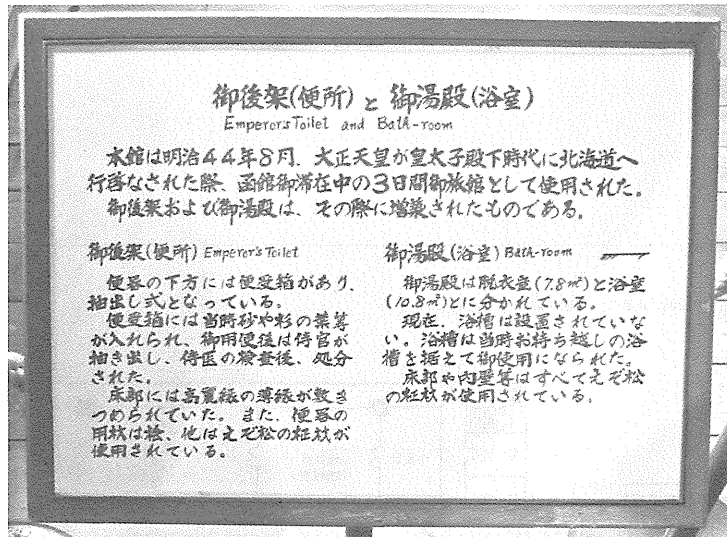 御後架(便所)と御湯殿(浴室)
Emperor's Toilet and Bath-room
本館は明治44年8月、大正天皇が皇太子殿下時代に北海道へ
行啓なされた際、函館御滞在中の3日間御旅館として使用された。
御後架および御湯殿は、その際に増築されたものである。
御後架(便所) Emperor's Toilet
便器の下方には便受箱があり、
抽出し式となっている。
便受箱には当時砂や杉の葉等
が入れられ、御用便後は侍官が
抽き出し、侍医の検査後、処分
された。
床部には高麗縁の薄縁が敷き
つめられていた。また、便器の
用材は桧、他はえぞ松の柾材が
使用されている。
御湯殿(浴室) Bath-room
御湯殿は脱衣室(7.8㎡)と浴室
(10.8㎡)とに分かれている。
現在、浴槽は設置されていな
い。浴槽は当時お持ち越しの浴
槽を据えて御使用になられた。
床部や内壁等はすべてえぞ松
の柾材が使用されている。